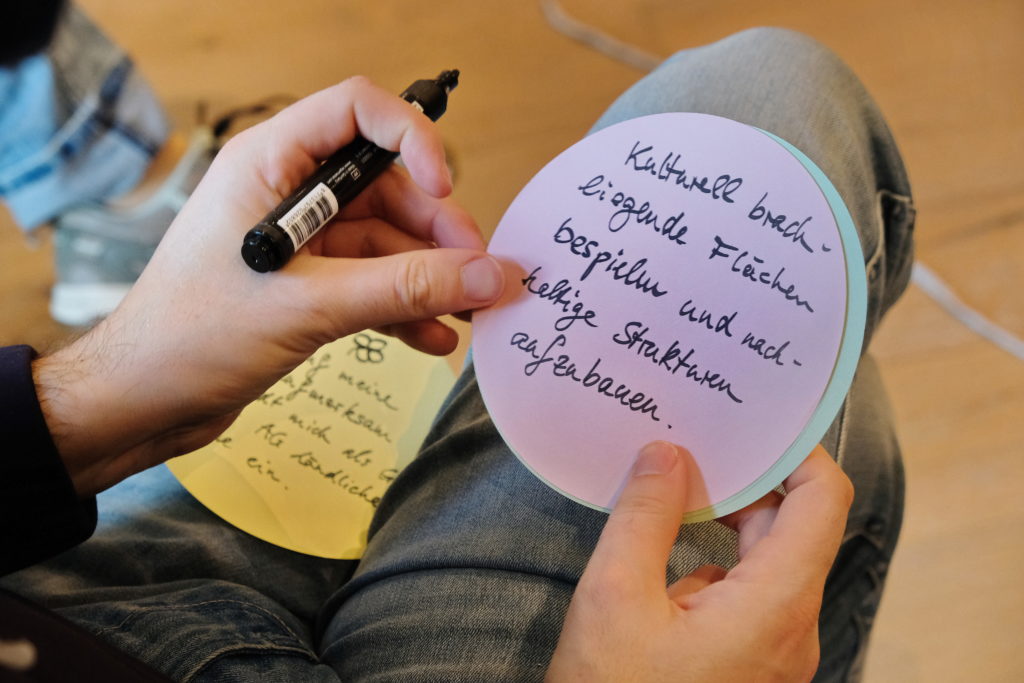 Kulturell brach-
liegende Flächen
bespielen und nach-
haltige Strukturen
aufzubauen.
meine
aufmerksam
mich als G
AG Ländliche
ein.